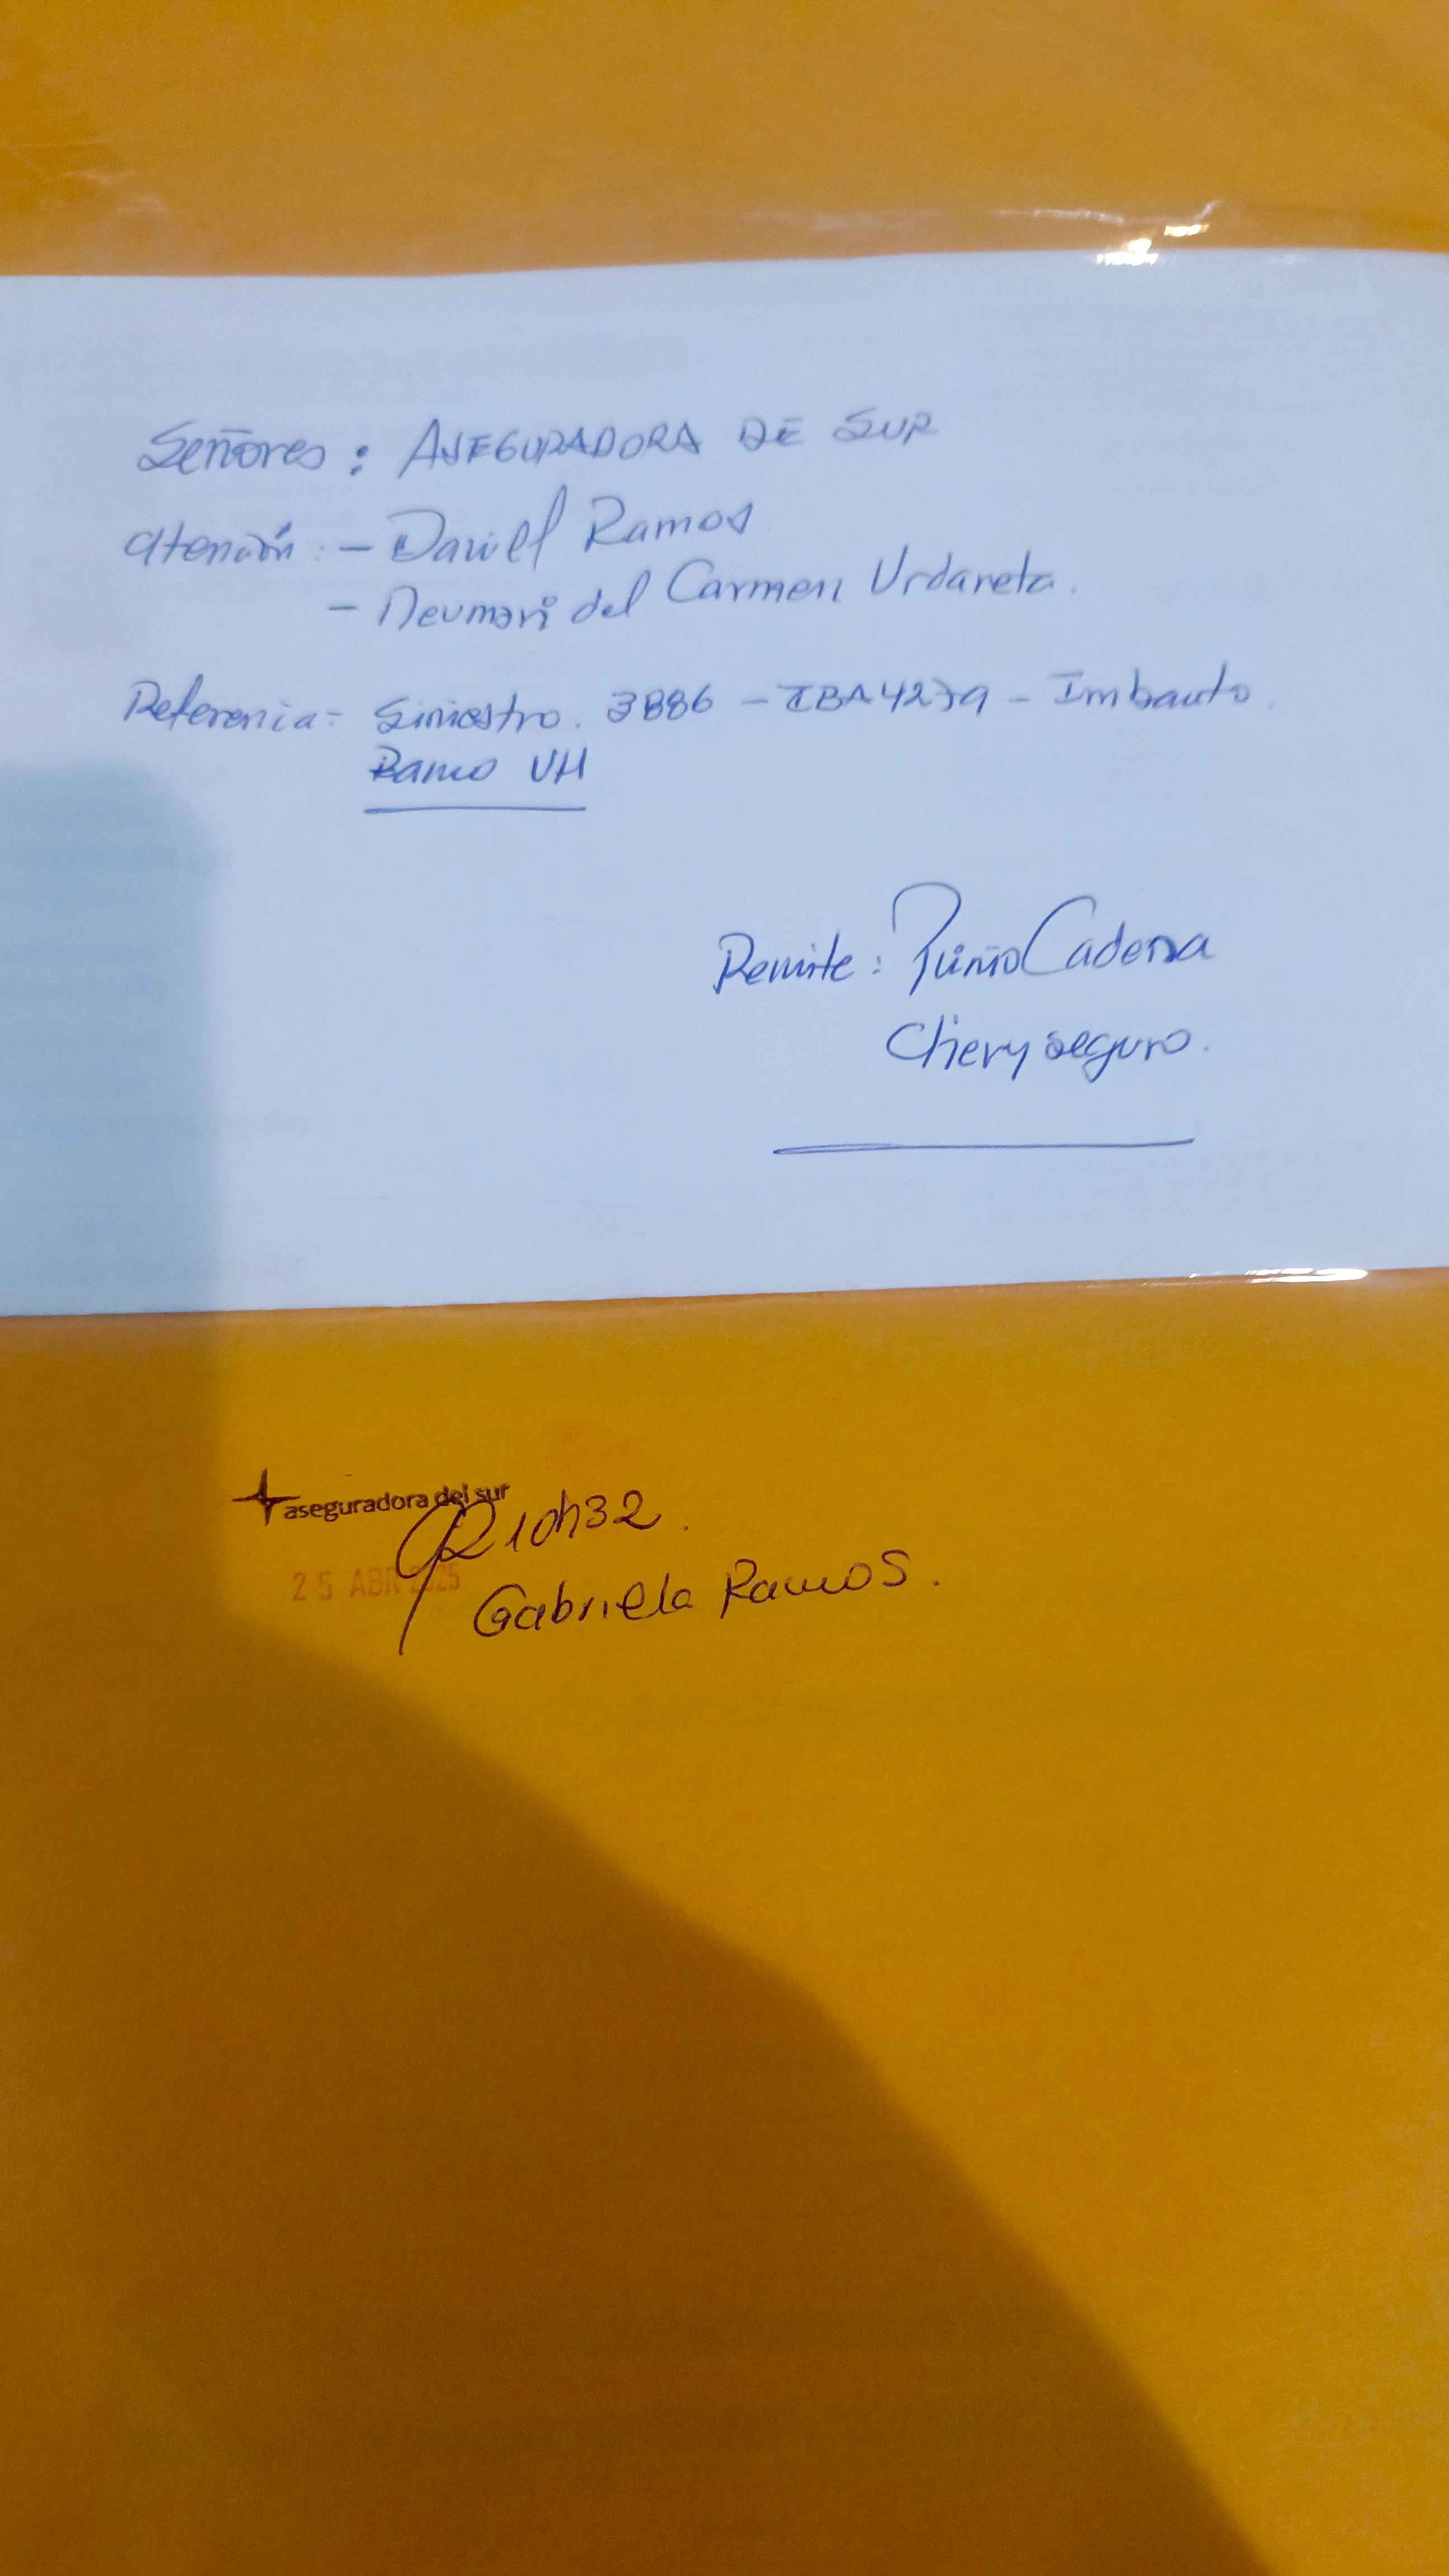 Señores : ASEGURADORA DE SUR
Atención : - Daniel Ramos
- Neumari del Carmen Urdaneta.
Referencia = Siniestro. 3886 - IBA4279 - Imbauto.
Ramo VH
Remite : Plinio Cadena
Chevyseguro.
aseguradora del sur
10h32.
25 ABR 2025
Gabriela Ramos.